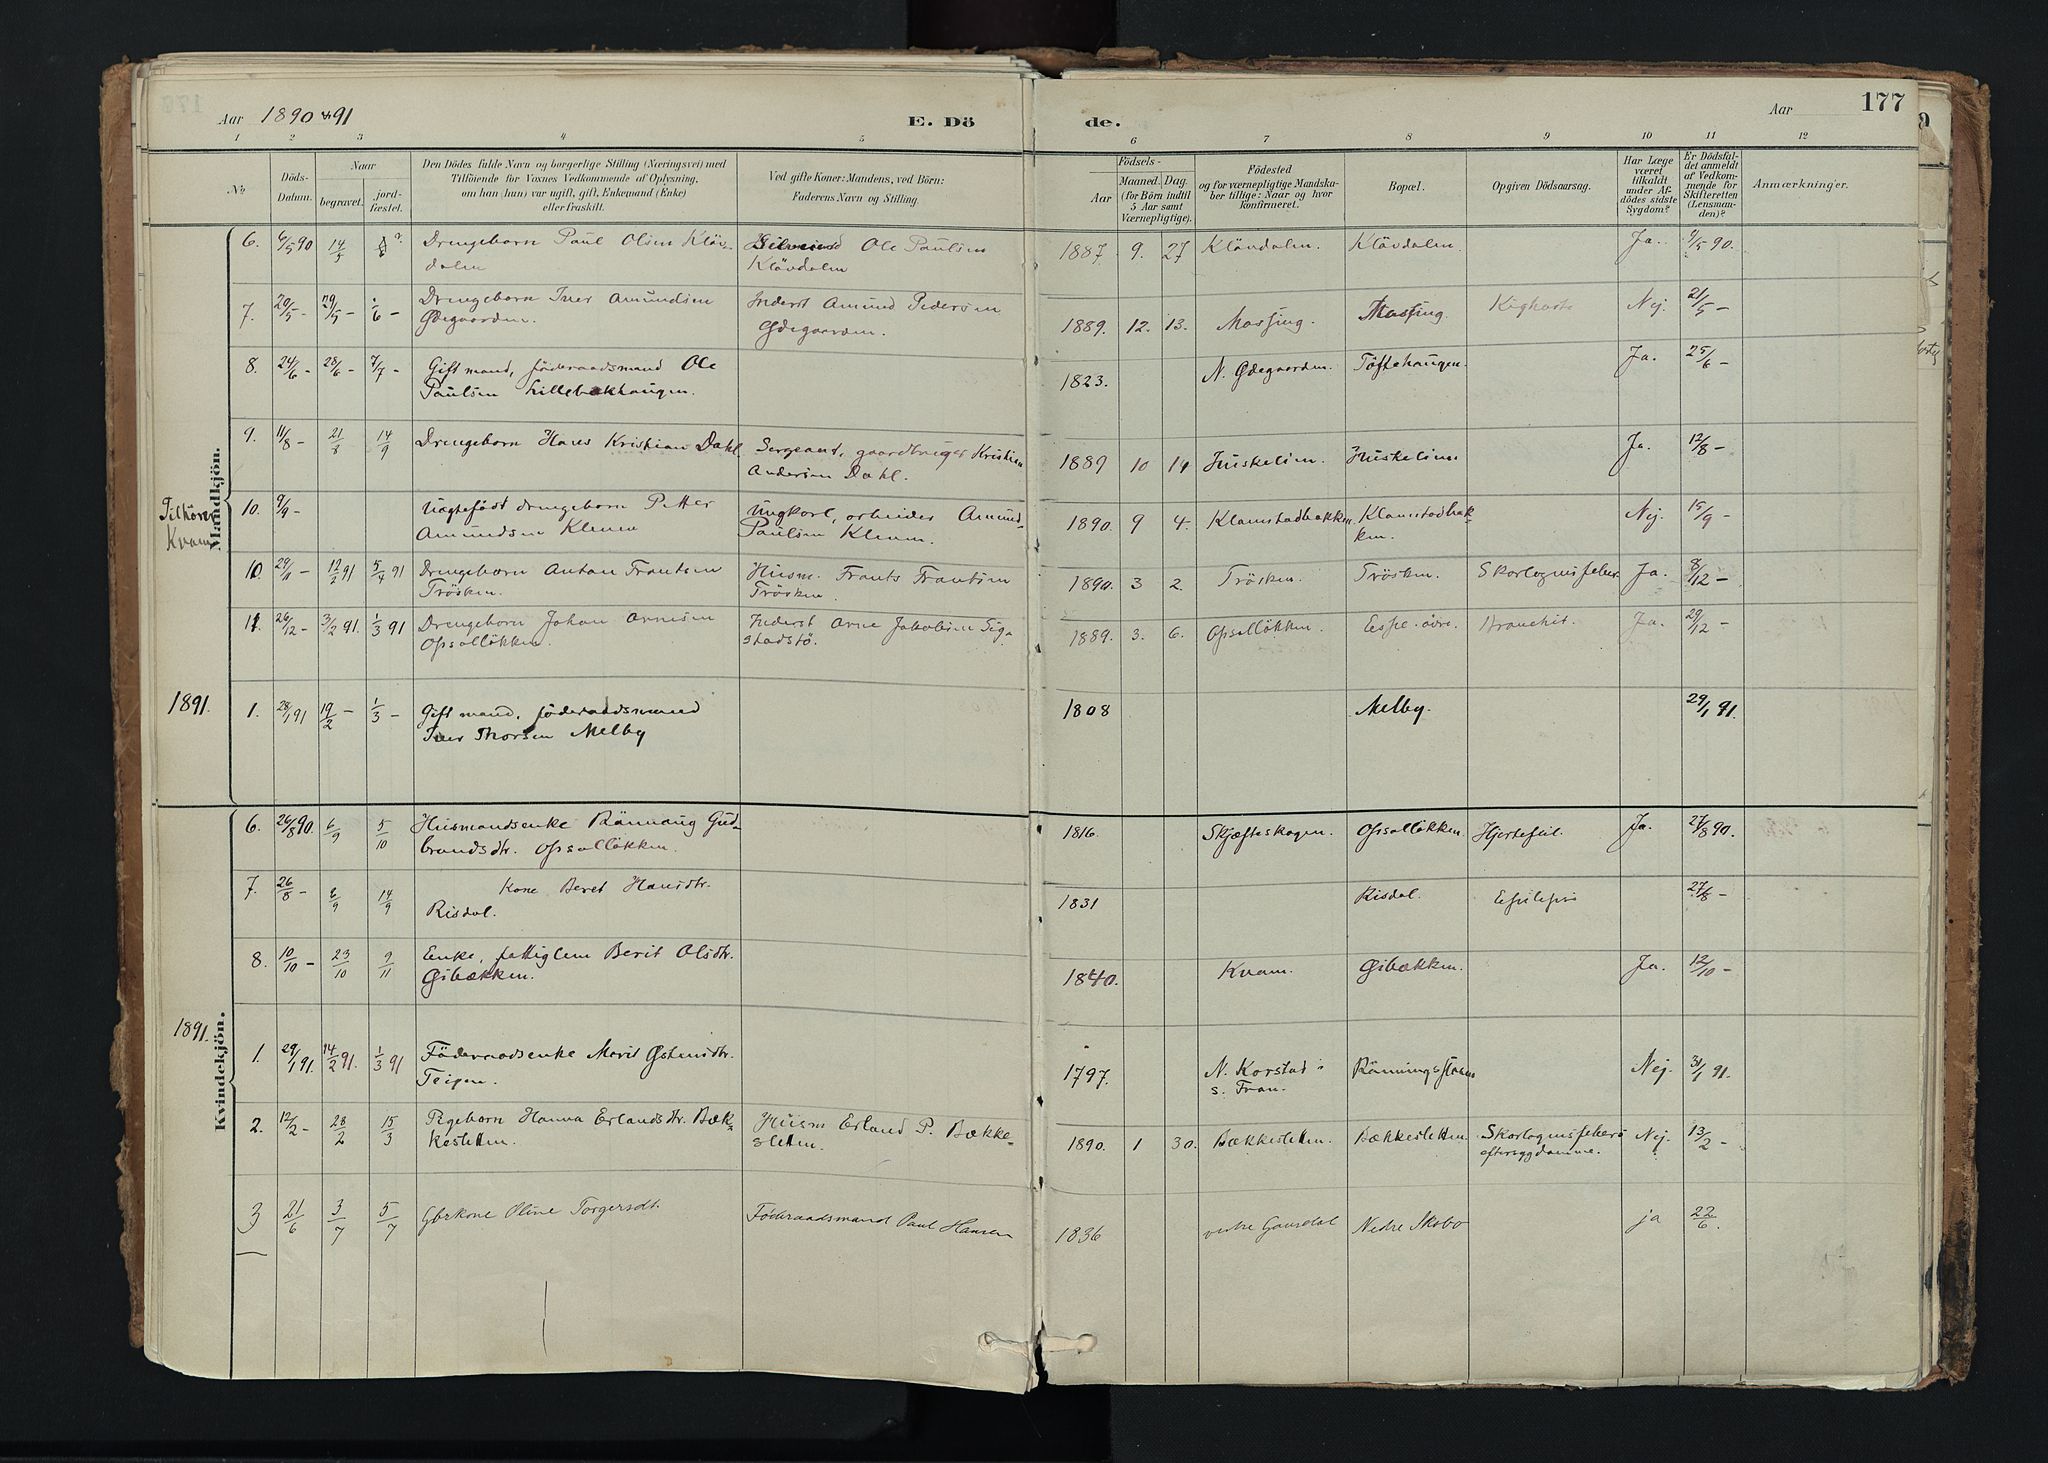 Aar 1890 & 91
E. Dö
de.
Aar
177
1 2 3 4 5 6 7 8 9 10 11 12
No
Döds-Datum.
Naar
begravet.
jord-fæstet.
Den Dödes fulde Navn og borgerlige Stilling (Næringsvei) med
Tilföiende for Voxnes Vedkommende af Oplysning,
om han (hun) var ugift, gift, Enkemand (Enke)
eller fraskilt.
Ved gifte Koner: Mandens, ved Börn:
Faderens Navn og Stilling.
Födsels-
Aar
Maaned. Dag.
(for Börn indtil
5 Aar samt
Værnepligtige).
Födested
og for værnepligtige Mandska-
ber tillige: Naar og hvor
konfirmeret.
Bopæl.
Opgiven Dödsaarsag.
Har Læge
været
tilkaldt
under Af-
dödes sidste
Sygdom?
Er Dödsfal-
det anmeldt
af Vedkom-
mende for
Skifteretten
(Lensman-
den)?
Anmærkninger.
Mandkjön.
6. 6/5 90 14/5 Drengebarn Paul Olsen Klöv- Ole Paulsen 1887 9. 27 Klövdalen. Klövdalen. Ja. 9/5 90.
dalen Klövdalen
7. 20/5 - 29/5 - /6 - Drengebarn Iver Amundsen Inderst Amund Pedersen 1889. 12. 13. Massing. Massing. Kighoste Nej. 21/5 -
Ödegaarden. Ödegaarden.
8. 24/6 - 28/6 - 7/7 - Gift mand, föderaadsmand Ole 1823. N. Ödegaarden. Töftehaugen. Ja. 25/6 -
Paulsen Lillebakhaugen.
9. 11/8 - 21/8 14/9 Drengebarn Hans Kristian Dahl Sergeant, gaardbruger Kristian 1889 10 14 Huskelien. Huskelien Ja. 12/8 -
Andersen Dahl.
Tilhører
Kvam
10. 9/9 - Uægtefödt drengebarn Petter Ungkarl, arbeider Amund 1890. 9 4. Klomstadbakken. Klomstadbak- Nej. 15/9 -
Amundsen Kleven Paulsen Kleven. ken.
10. 29/11 - 12/2 91 5/4 91 Drengebarn Anton Frantsen Husm. Frants Frantsen 1890. 3 2. Trösken. Trösken. Skarlagensfeber. Ja. 8/12 -
Trösken. Trösken.
11. 26/12 - 3/2 91. 1/3 91 Drengebarn Johan Arnesen Inderst Arne Jakobsen Sig- 1889. 3. 6. Opsalløkken. Espe övre. Bronchit. Ja. 29/12 -
Opsalløkken. stadstö.
1891.
1. 28/1 91 19/2 - 1/3 - Gift mand, föderaadsmand 1808 Melby. 29/1 91.
Iver Thorsen Melby
Kvindekjön.
6. 26/8 90. 6/9 5/10 Husmandsenke Rönnaug Gud- 1816. Skjæfteskogen. Opsalløkken. Hjertefeil. Ja. 27/8 90.
brandsdtr. Opsalløkken.
7. 26/8 - 6/9 14/9 Kone Beret Hansdtr. 1831 Risdal. Epilepsi 27/8 -
Risdal.
8. 10/10 - 23/10 9/11 Enke, fattiglem Berit Olsdtr. 1840. Kvam. Øibækken. Ja. 12/10 -
Øibækken.
1891.
1. 29/1 91. 14/2 91. 1/3 91 Föderaadsenke Marit Østensdtr. 1797. N. Korstad i Nej. 31/1 91.
Teigen. s. Fron.
2. 12/2 - 28/2 15/3 Pigebarn Hanna Erlandsdtr. Bæk- Husm Erland P. Bække- 1890. 1 30. Bækkesletten. Bækkesletten. Skarlagensfebers Nej. 13/2 -
kesletten. sletten. eftersygdomme.
3 21/6 3/7 5/7 Gbrkone Oline Torgersdt. Föderaadsmand Paul Hansen 1836 vestre Gausdal Nedre Skobo ja 22/6.